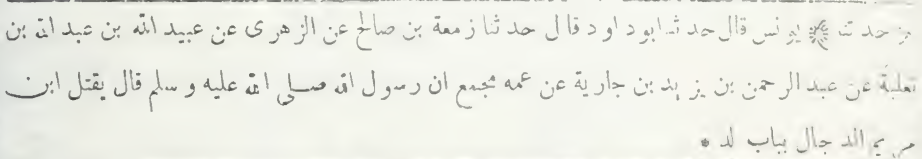 حدثنا يونس قال حدثنا ابو داود قال حدثنا زمعة بن صالح عن الزهرى عن عبيد الله بن عبد الله بن
ثعلبة عن عبد الرحمن بن يزيد بن جارية عن عمه مجمع ان رسول الله صلى الله عليه وسلم قال يقتل ابن
مريم الدجال بباب لد *